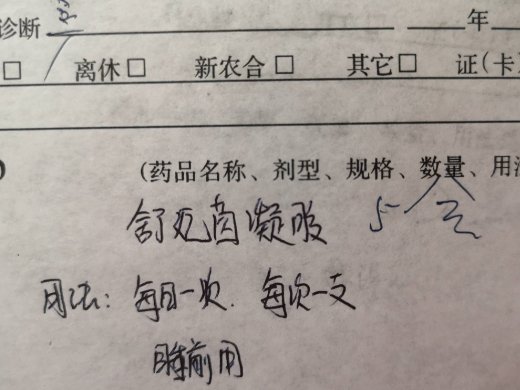 诊断 年
□ 离休□ 新农合□ 其它□ 证(卡
(药品名称、剂型、规格、数量、用
凝胶 5盒
用法: 每日一次. 每次一支
睡前用